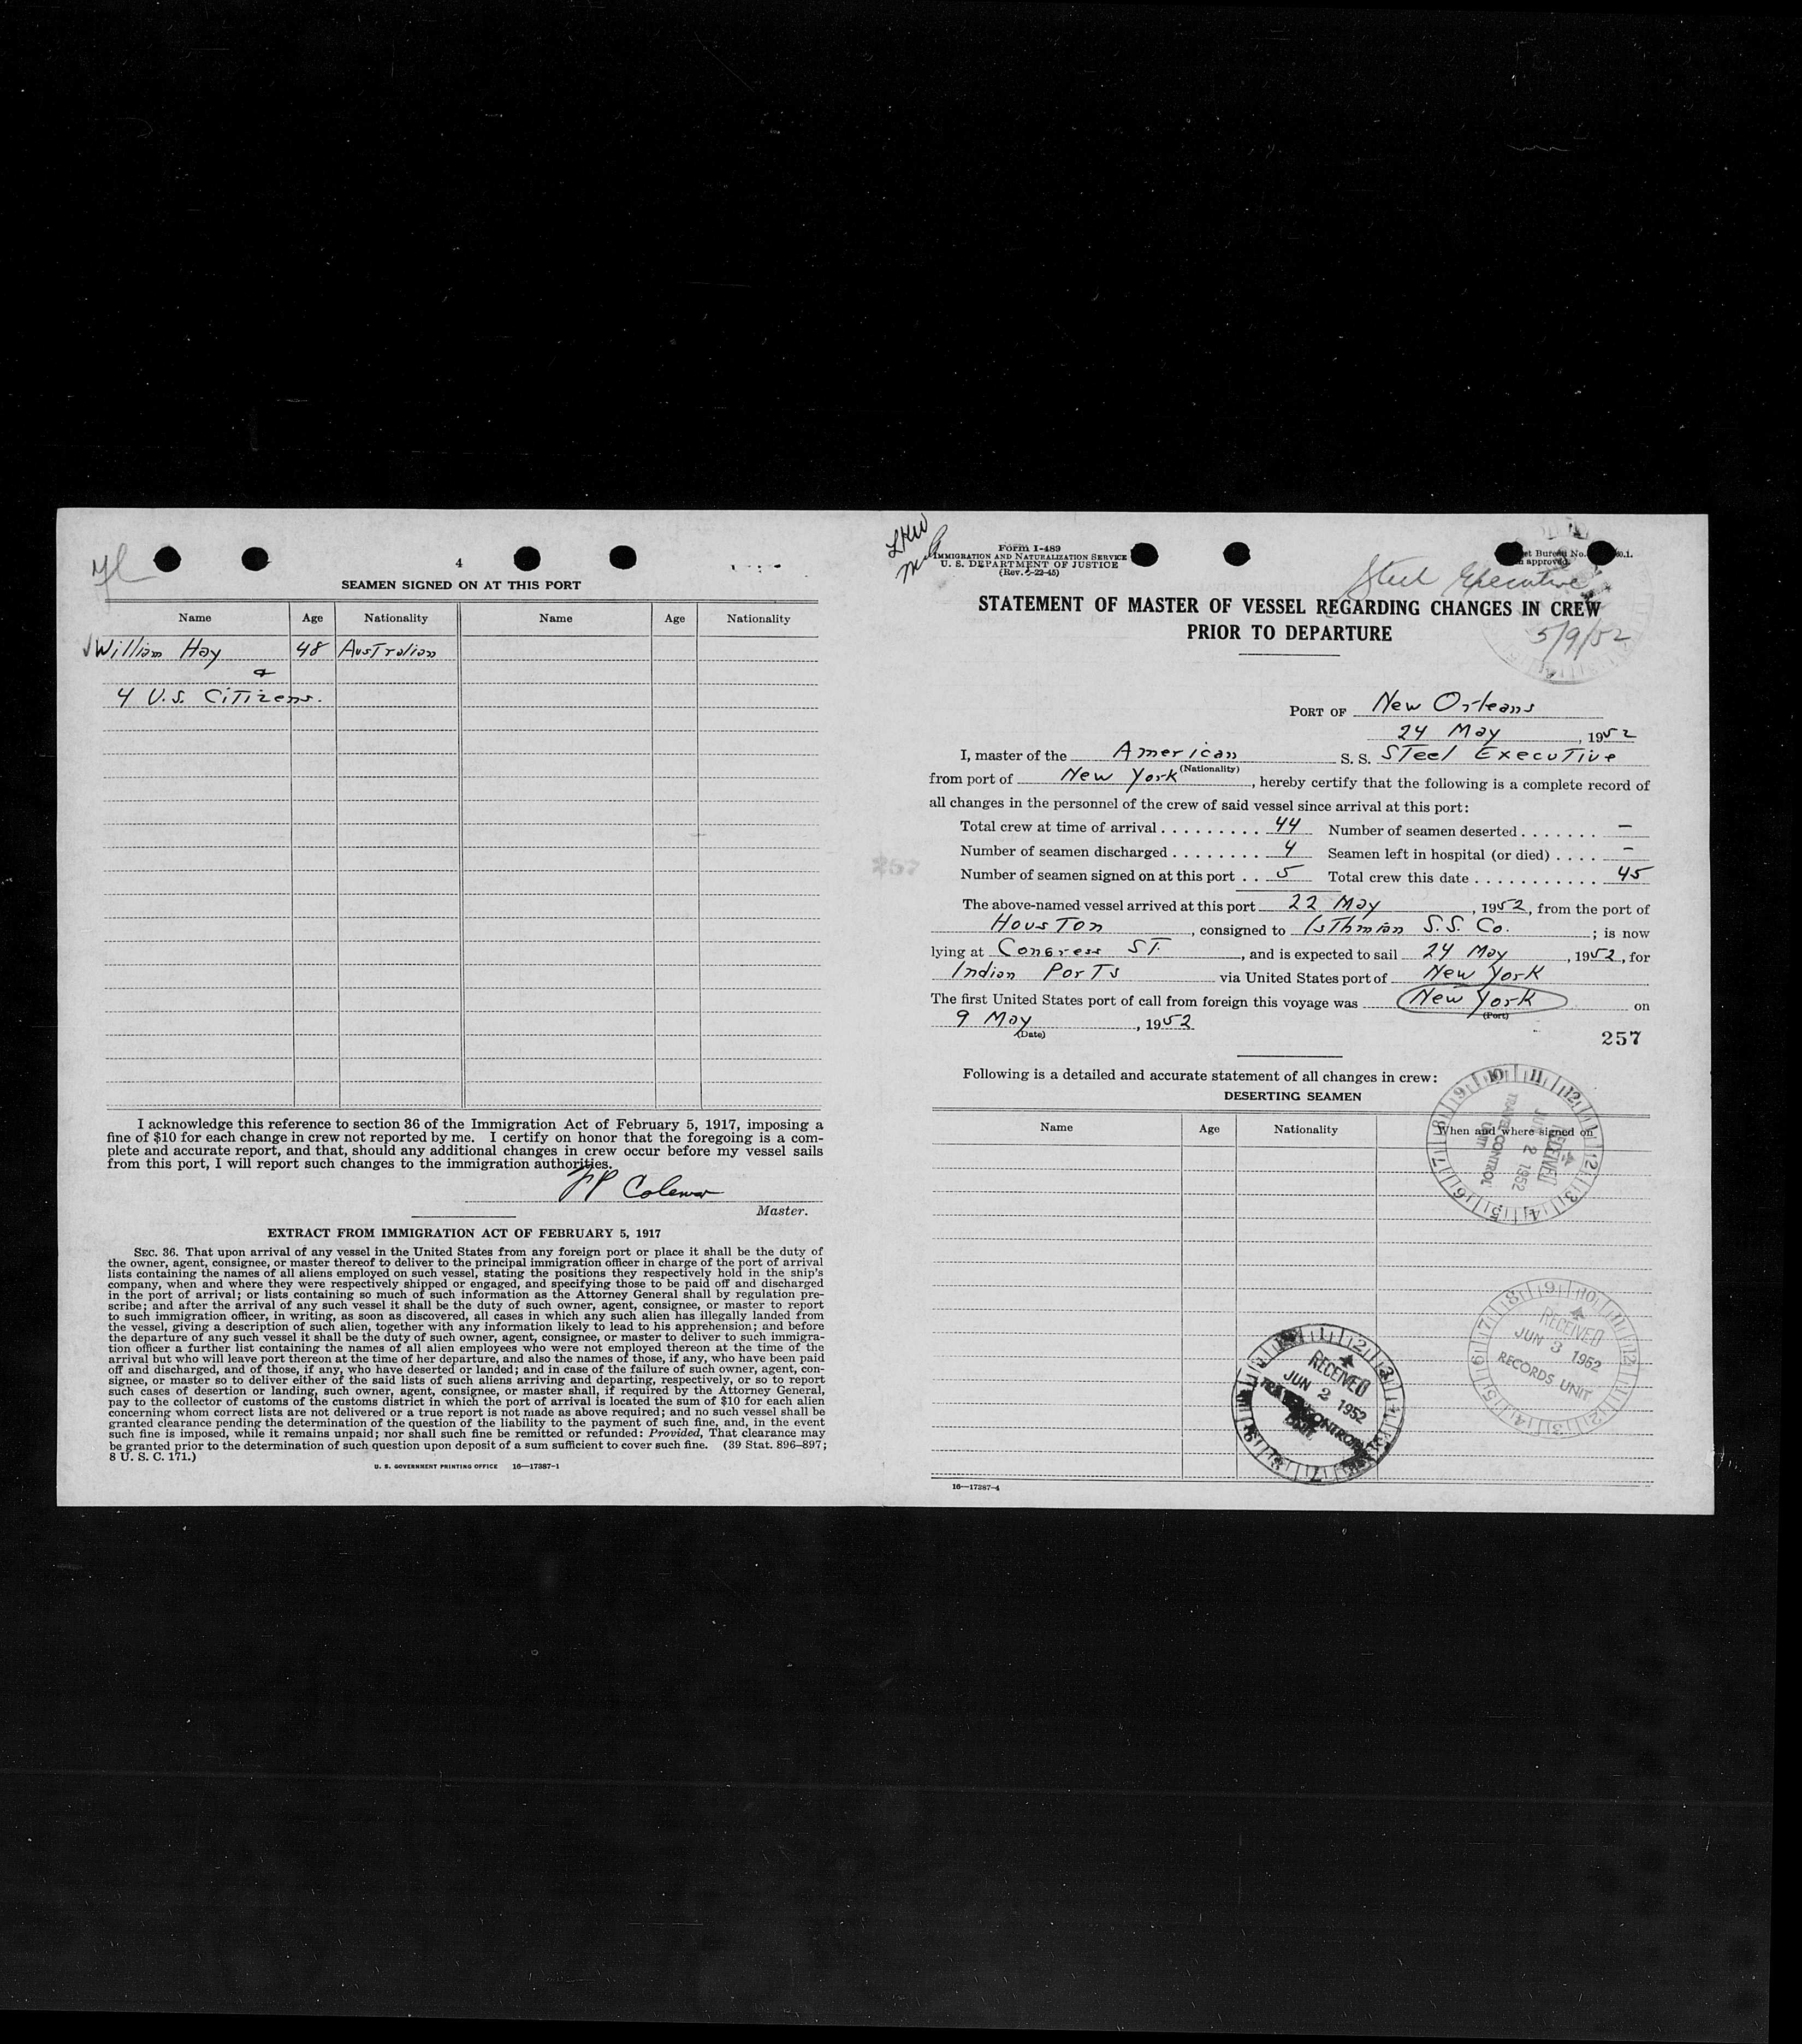 4
SEAMEN SIGNED ON AT THIS PORT
Name Age Nationality Name Age Nationality
William Hay 48 Australian
&
4 U.S. Citizens.
I acknowledge this reference to section 36 of the Immigration Act of February 5, 1917, imposing a
fine of $10 for each change in crew not reported by me. I certify on honor that the foregoing is a com-
plete and accurate report, and that, should any additional changes in crew occur before my vessel sails
from this port, I will report such changes to the immigration authorities.
Master.
EXTRACT FROM IMMIGRATION ACT OF FEBRUARY 5, 1917
SEC. 36. That upon arrival of any vessel in the United States from any foreign port or place it shall be the duty of
the owner, agent, consignee, or master thereof to deliver to the principal immigration officer in charge of the port of arrival
lists containing the names of all aliens employed on such vessel, stating the positions they respectively hold in the ship's
company, when and where they were respectively shipped or engaged, and specifying those to be paid off and discharged
in the port of arrival; or lists containing so much of such information as the Attorney General shall by regulation pre-
scribe; and after the arrival of any such vessel it shall be the duty of such owner, agent, consignee, or master to report
to such immigration officer, in writing, as soon as discovered, all cases in which any such alien has illegally landed from
the vessel, giving a description of such alien, together with any information likely to lead to his apprehension; and before
the departure of any such vessel it shall be the duty of such owner, agent, consignee, or master to deliver to such immigra-
tion officer a further list containing the names of all alien employees who were not employed thereon at the time of the
arrival but who will leave port thereon at the time of her departure, and also the names of those, if any, who have been paid
off and discharged, and of those, if any, who have deserted or landed; and in case of the failure of such owner, agent, con-
signee, or master so to deliver either of the said lists of such aliens arriving and departing, respectively, or so to report
such cases of desertion or landing, such owner, agent, consignee, or master shall, if required by the Attorney General,
pay to the collector of customs of the customs district in which the port of arrival is located the sum of $10 for each alien
concerning whom correct lists are not delivered or a true report is not made as above required; and no such vessel shall be
granted clearance pending the determination of the question of the liability to the payment of such fine, and, in the event
such fine is imposed, while it remains unpaid; nor shall such fine be remitted or refunded: Provided, That clearance may
be granted prior to the determination of such question upon deposit of a sum sufficient to cover such fine. (39 Stat. 896–897;
8 U. S. C. 171.)
U. S. GOVERNMENT PRINTING OFFICE 16—17387-1
Form I-489
IMMIGRATION AND NATURALIZATION SERVICE
U. S. DEPARTMENT OF JUSTICE
Bureau No.
approved
Steel Executive
STATEMENT OF MASTER OF VESSEL REGARDING CHANGES IN CREW
PRIOR TO DEPARTURE
5/9/52
PORT OF New Orleans
24 May, 1952
I, master of the American S. S. Steel Executive
(Nationality)
from port of New York, hereby certify that the following is a complete record of
all changes in the personnel of the crew of said vessel since arrival at this port:
Total crew at time of arrival . . . . . . . . . 44 Number of seamen deserted . . . . . . . –
Number of seamen discharged . . . . . . . . 4 Seamen left in hospital (or died) . . . . –
Number of seamen signed on at this port . . 5 Total crew this date . . . . . . . . . . . . 45
The above-named vessel arrived at this port 22 May, 1952, from the port of
Houston, consigned to Isthmian S.S. Co.; is now
lying at Congress St., and is expected to sail 24 May, 1952, for
Indian Ports via United States port of New York
The first United States port of call from foreign this voyage was New York on
(Port)
9 May, 1952
(Date)
257
257
Following is a detailed and accurate statement of all changes in crew:
DESERTING SEAMEN
Name Age Nationality When and where signed on
RECEIVED
JUN 2 1952
TRAVEL CONTROL
UNIT
RECEIVED
JUN 3 1952
RECORDS UNIT
RECEIVED
JUN 2 1952
16—17387-4